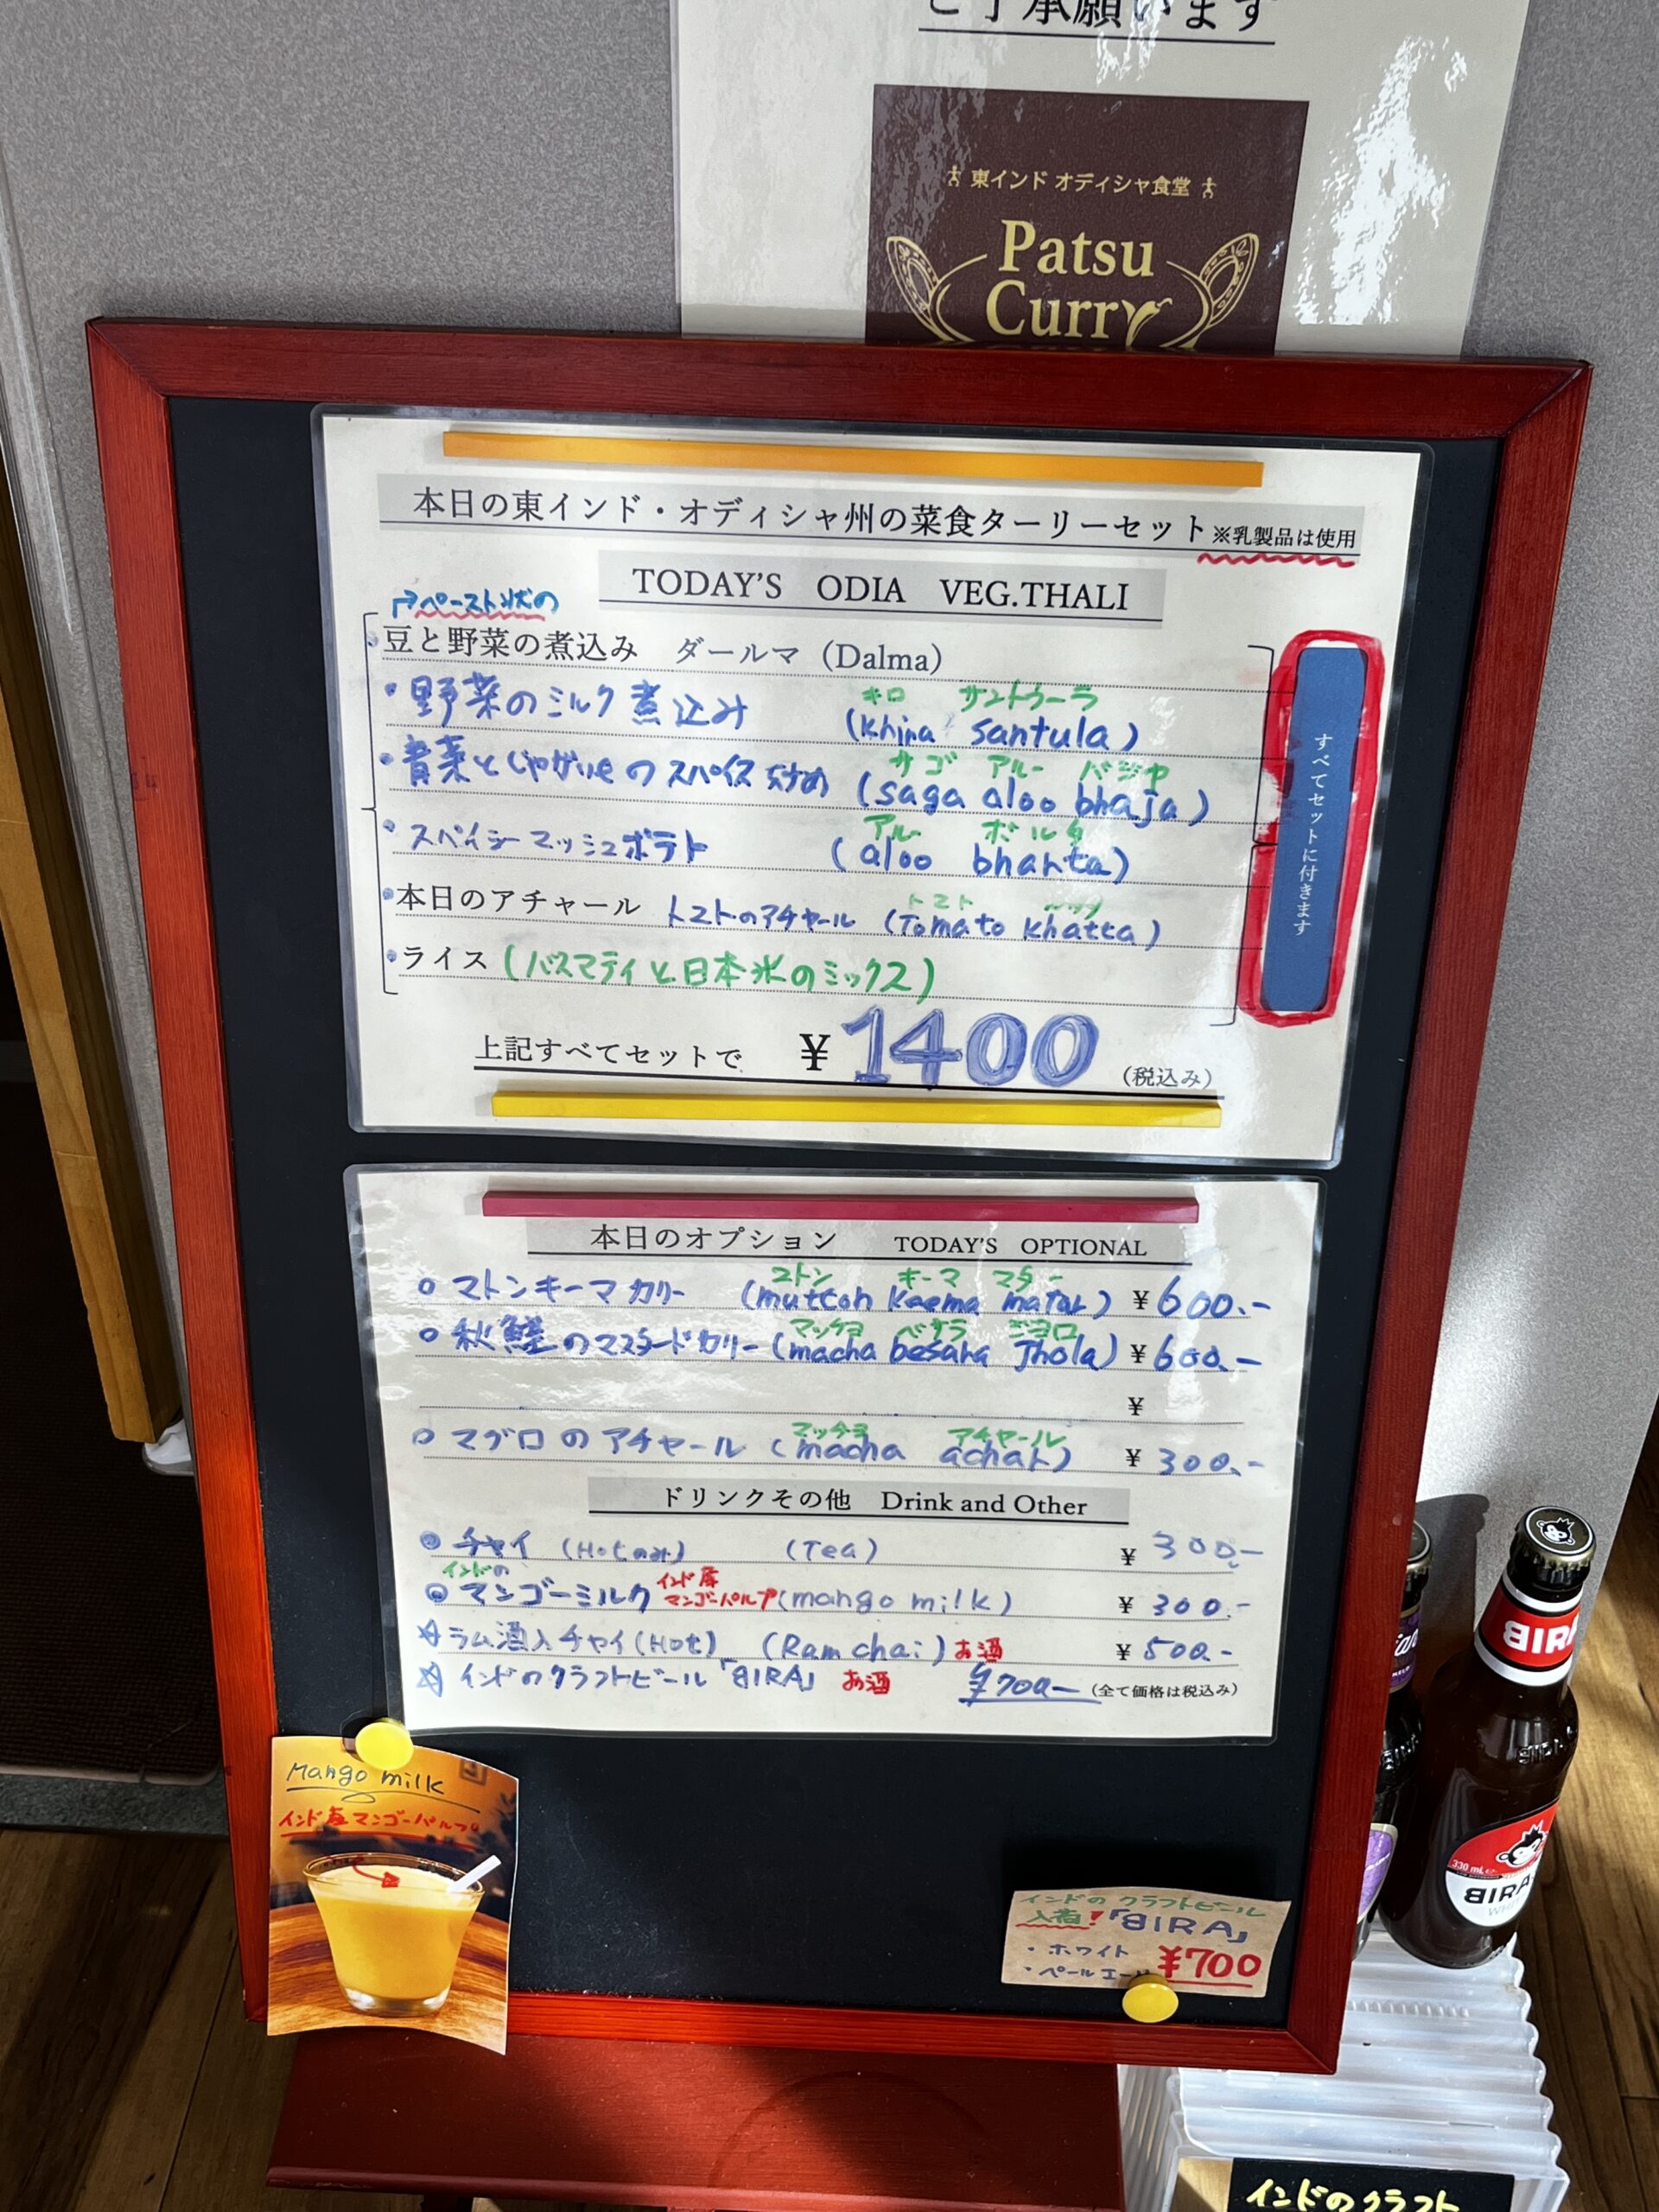 ご了承願います
東インド オディシャ食堂
Patsu
Curry
本日の東インド・オディシャ州の菜食ターリーセット※乳製品は使用
TODAY'S ODIA VEG.THALI
ペースト状の
・豆と野菜の煮込み ダールマ (Dalma)
キロ サントゥーラ
・野菜のミルク煮込み (khira santula)
サゴ アルー バジャ
・青菜とじゃがいものスパイス炒め (saga aloo bhaja)
アルー ボルタ
・スパイシーマッシュポテト (aloo bharta)
トマト
・本日のアチャール トマトのアチャール (Tomato khatta)
・ライス (バスマティと日本米のミックス)
すべてセットに付きます
上記すべてセットで ¥1400 (税込み)
本日のオプション TODAY'S OPTIONAL
マトン キーマ マター
○マトンキーマカリー (mutton keema matar) ¥600.-
マッチョ ベサラ ジョロ
○秋鮭のマスタードカリー (macha besara jhola) ¥600.-
¥
マッチョ アチャール
○マグロのアチャール (macha achar) ¥300.-
ドリンクその他 Drink and Other
◎チャイ (Hotのみ) (Tea) ¥300.-
インドの インド産
◎マンゴーミルク マンゴーパルプ (mango milk) ¥300.-
☆ラム酒入チャイ(Hot) (Ram chai) お酒 ¥500.-
☆インドのクラフトビール「BIRA」 お酒 ¥700- (全て価格は税込み)
Mango milk
インド産マンゴーパルプ
インドの クラフトビール
入荷!「BIRA」
・ホワイト ¥700
・ペールエール
BIRA
330 mL
BIRA
インドのクラフト